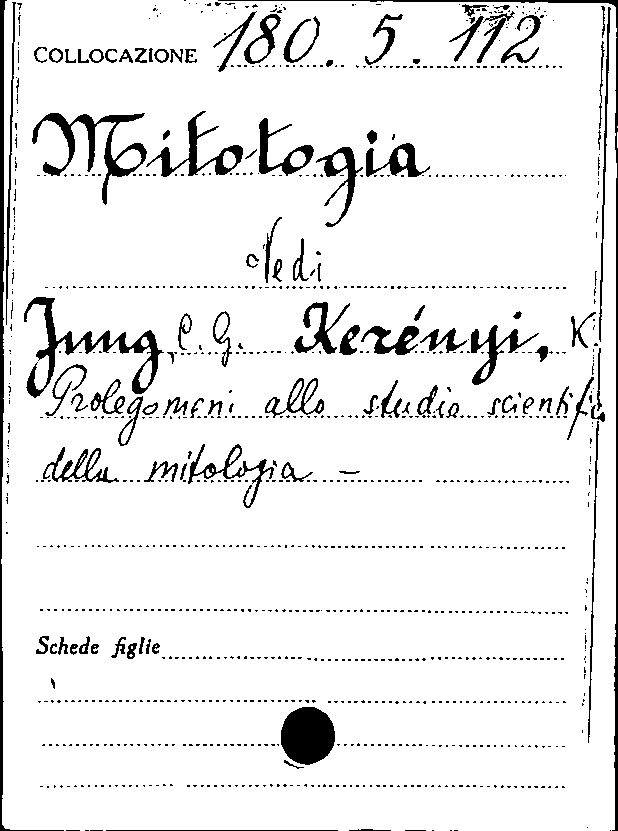 COLLOCAZIONE 180. 5. 112
Mitologia
Vedi
Jung, C. G. Kerényi, K.
Prolegomeni allo studio scientific
della mitologia –
Schede figlie